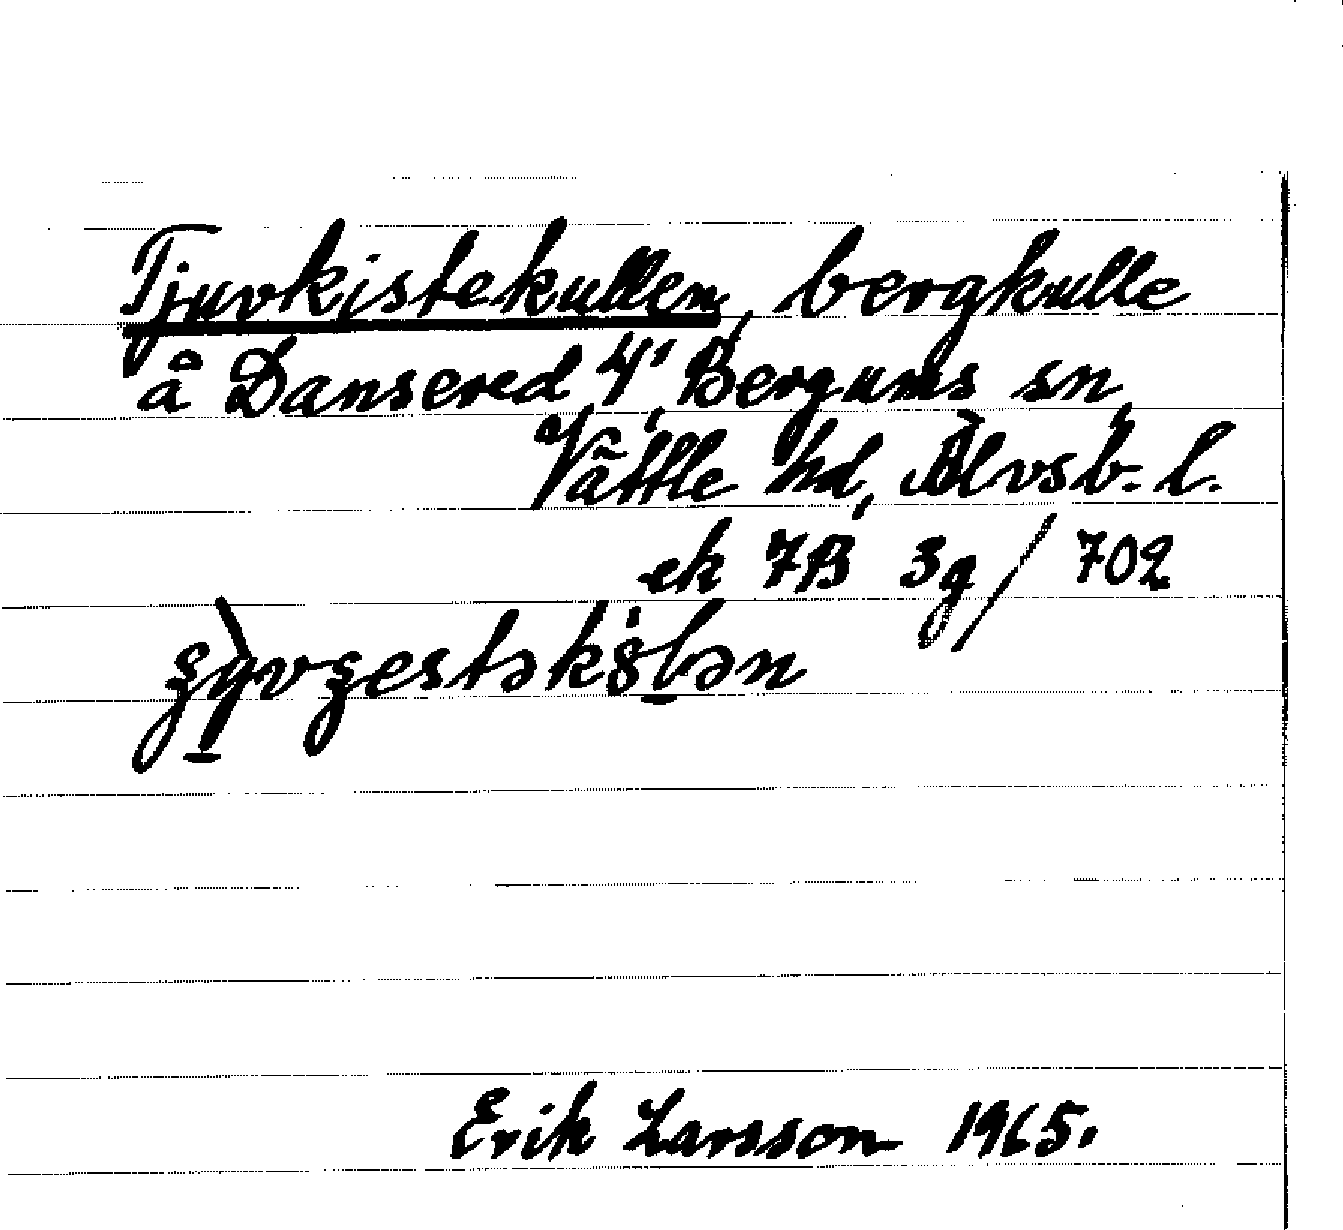 Tjuvkistekullen, bergkulle
å Dansered 4¹, Bergums sn,
Vättle hd, Älvsb. l.
ek 7B 3g/702
Erik Larsson 1965.